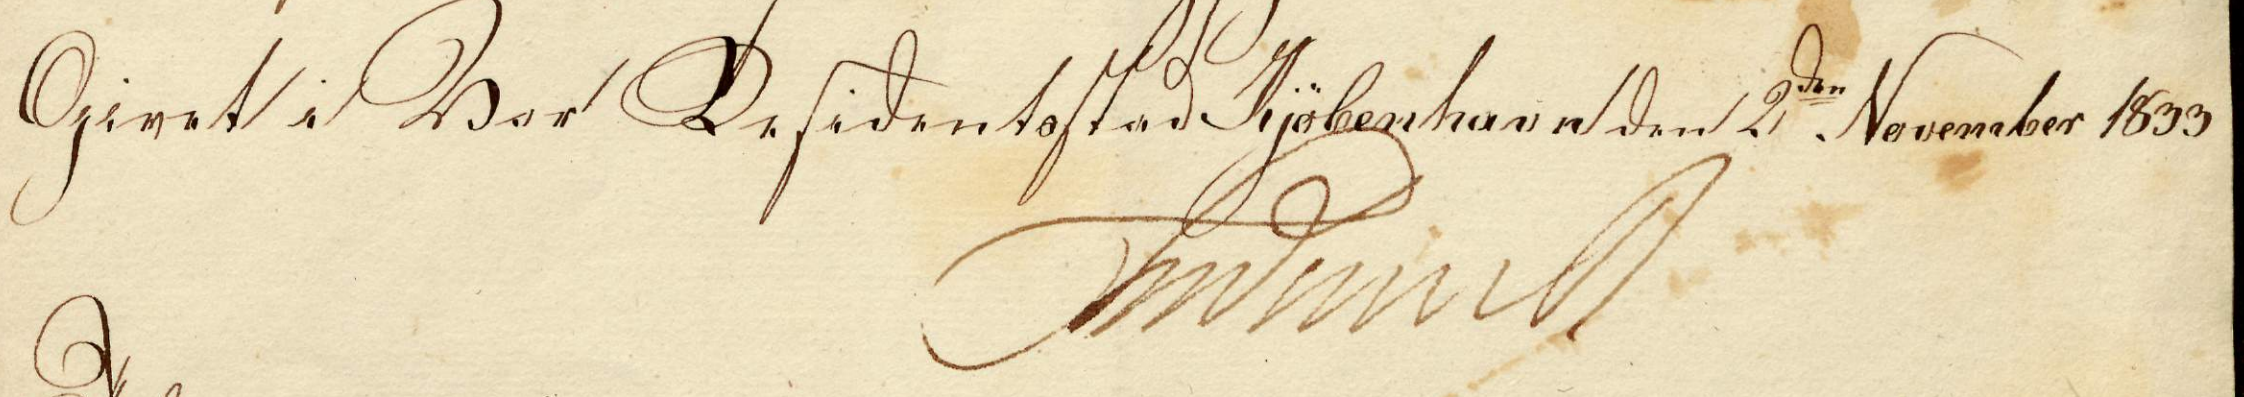 Givet i Vor Residentsstad Kjöbenhavn den 2den November 1833
Frederik R